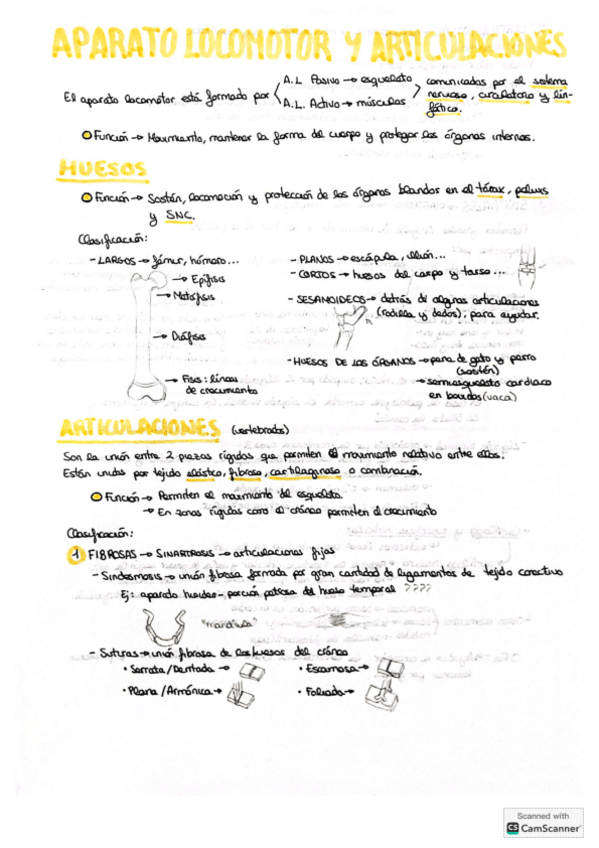 APARATO LOCOMOTOR Y ARTICULACIONES
El aparato locomotor está formado por
A.L. Pasivo → esqueleto
A.L. Activo → músculos
comunicados por el sistema
nervioso, circulatorio y lin-
fático.
Función → Movimiento, mantener la forma del cuerpo y proteger los órganos internos.
HUESOS
Función → Sostén, locomoción y protección de los órganos blandos en el tórax, pelvis
y SNC.
Clasificación:
- LARGOS → fémur, húmero...
→ Epífisis
→ Metáfisis
→ Diáfisis
→ Fisis: líneas
de crecimiento
- PLANOS → escápula, ilion...
- CORTOS → huesos del carpo y tarso...
- SESAMOIDEOS → detrás de algunas articulaciones
(rodilla y dedos); para ayudar.
- HUESOS DE LOS ÓRGANOS → pene de gato y perro
(sostén)
→ semiesqueleto cardiaco
en bovidos (vaca)
ARTICULACIONES (vertebrados)
Son la unión entre 2 piezas rígidas que permiten el movimiento relativo entre ellas.
Están unidas por tejido elástico, fibroso, cartilaginoso o combinación.
Función → Permiten el movimiento del esqueleto.
→ En zonas rígidas como el cráneo permiten el crecimiento
Clasificación:
1 FIBROSAS → SINARTROSIS → articulaciones fijas
- Sindesmosis → unión fibrosa formada por gran cantidad de ligamentos de tejido conectivo
Ej: aparato hioideo - porción petrosa del hueso temporal ????
"mandíbula"
- Suturas → unión fibrosa de los huesos del cráneo
• Serrata / Dentada →
• Escamosa →
• Plana / Armónica →
• Foliada →
Scanned with
CS CamScanner